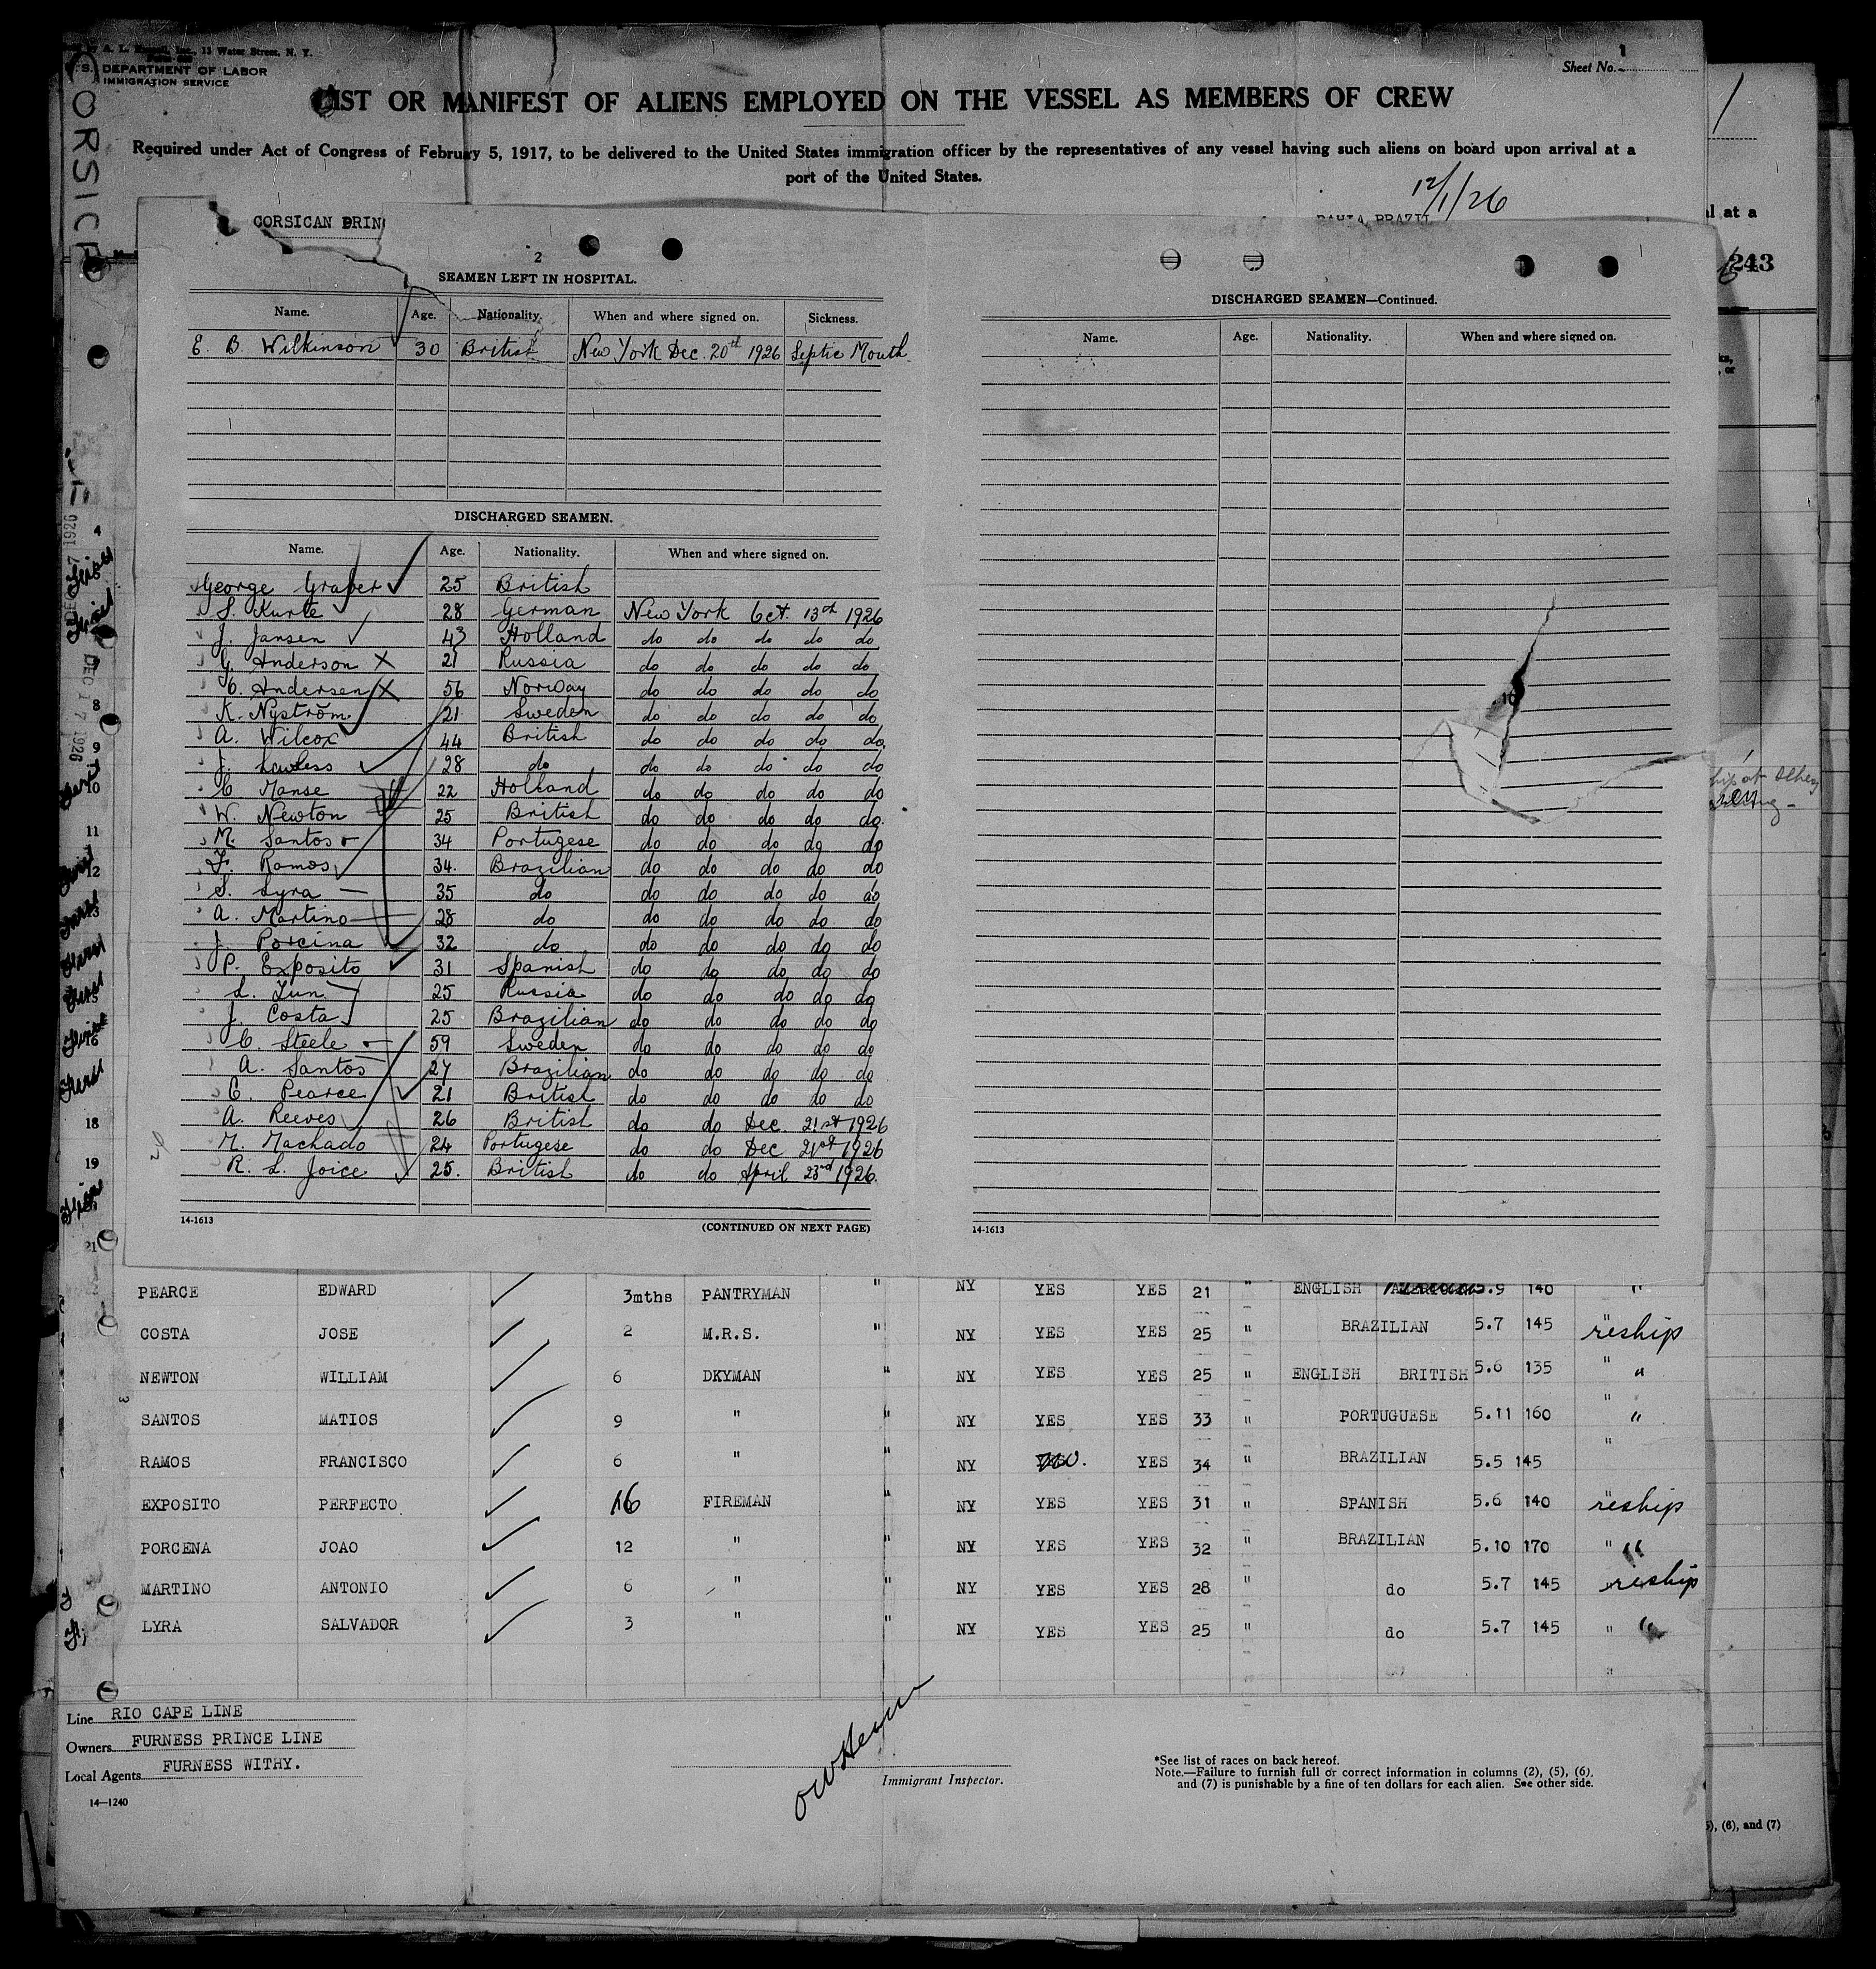 A. L. 13 Water Street, N. Y.
DEPARTMENT OF LABOR
IMMIGRATION SERVICE
Sheet No. 1
LIST OR MANIFEST OF ALIENS EMPLOYED ON THE VESSEL AS MEMBERS OF CREW
Required under Act of Congress of February 5, 1917, to be delivered to the United States immigration officer by the representatives of any vessel having such aliens on board upon arrival at a
port of the United States.
12/1/26
CORSICAN PRIN
BAHIA BRAZIL
al at a
243
2
SEAMEN LEFT IN HOSPITAL.
Name. Age. Nationality. When and where signed on. Sickness.
E. B. Wilkinson 30 British New York Dec. 20th 1926 Septic Mouth
DISCHARGED SEAMEN.
Name. Age. Nationality. When and where signed on.
George Graber 25 British
S. Kurte 28 German New York Oct. 13th 1926
J. Jansen 43 Holland do do do do do
G. Anderson X 21 Russia do do do do do
C. Andersen X 56 Norway do do do do do
K. Nyström 21 Sweden do do do do do
A. Wilcox 44 British do do do do do
J. Lawless 28 do do do do do do
C. Manse 22 Holland do do do do do
W. Newton 25 British do do do do do
M. Santos 34 Portugese do do do do do
F. Ramos 34. Brazilian do do do do do
S. Lyra 35 do do do do do do
A. Martino 28 do do do do do do
J. Porcina 32 do do do do do do
P. Exposito 31 Spanish do do do do do
L. Lun 25 Russia do do do do do
J. Costa 25 Brazilian do do do do do
C. Steele 59 Sweden do do do do do
A. Santos 27 Brazilian do do do do do
E. Pearce 21 British do do do do do
A. Reeves 26 British do do Dec. 21st 1926
M. Machado 24 Portugese do do Dec 21st 1926
R. L. Joice 25. British do do April 23rd 1926.
14-1613 (CONTINUED ON NEXT PAGE)
DISCHARGED SEAMEN—Continued.
Name. Age. Nationality. When and where signed on.
14-1613
PEARCE EDWARD 3mths PANTRYMAN " NY YES YES 21 " ENGLISH 5.9 140 "
COSTA JOSE 2 M.R.S. " NY YES YES 25 " BRAZILIAN 5.7 145 reship
NEWTON WILLIAM 6 DKYMAN " NY YES YES 25 " ENGLISH BRITISH 5.6 135 " "
SANTOS MATIOS 9 " " NY YES YES 33 " PORTUGUESE 5.11 160 " "
RAMOS FRANCISCO 6 " " NY no. YES 34 " BRAZILIAN 5.5 145 "
EXPOSITO PERFECTO 16 FIREMAN " NY YES YES 31 " SPANISH 5.6 140 reship
PORCENA JOAO 12 " " NY YES YES 32 " BRAZILIAN 5.10 170 " "
MARTINO ANTONIO 6 " " NY YES YES 28 " do 5.7 145 reship
LYRA SALVADOR 3 " " NY YES YES 25 " do 5.7 145 " "
Line RIO CAPE LINE
Owners FURNESS PRINCE LINE
Local Agents FURNESS WITHY.
14—1240
Immigrant Inspector.
*See list of races on back hereof.
Note.—Failure to furnish full or correct information in columns (2), (5), (6),
and (7) is punishable by a fine of ten dollars for each alien. See other side.
(6), and (7)